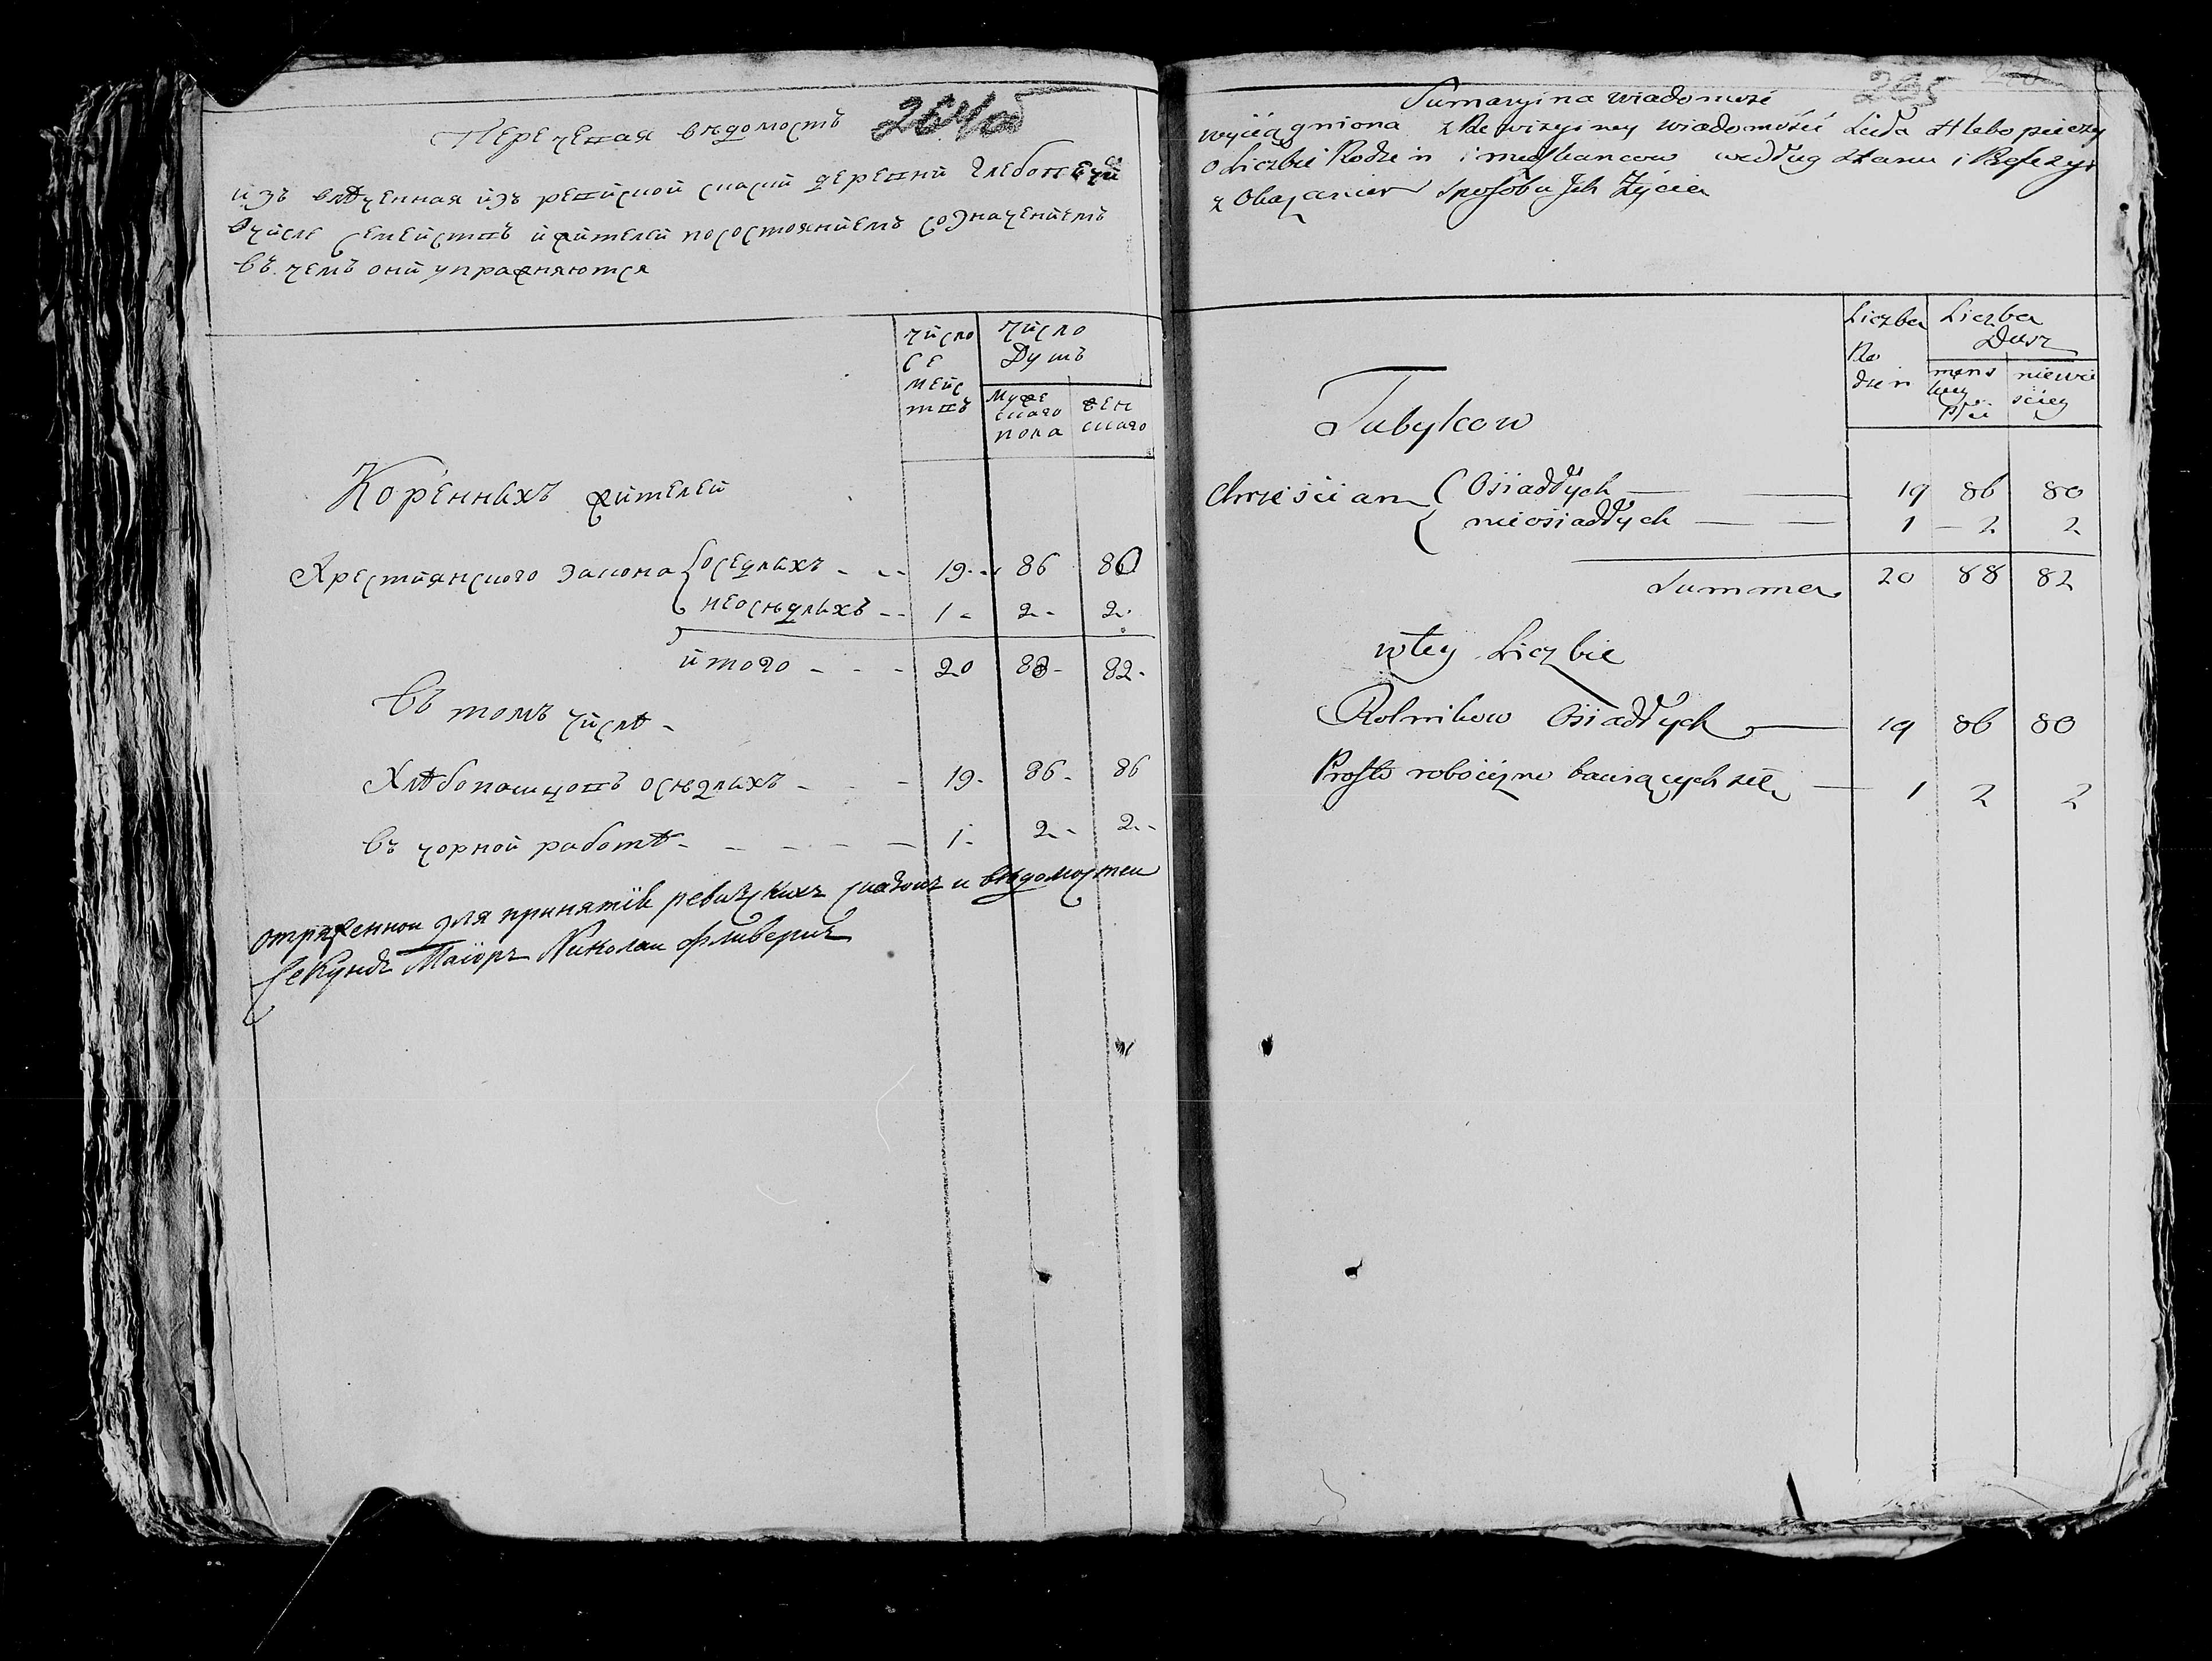 264об
Перечевая вѣдомость
изъ влѣченная изъ ревиской скаски деревни Глебо
О числе семействъ и жителей по состояниемъ со Значениемъ
въ чемъ они упражняются
число семействъ
число Душъ
мужескаго пола
женскаго
Коренныхъ жителей
Хрестиянского закона оседлыхъ - - 19 - 86 80
неосѣдлыхъ - - 1 - 2 - 2
итого - - - 20 88 - 82 -
Въ томъ числѣ -
Хлѣбопашцовъ осѣдлыхъ - - - 19 - 86 - 86
въ чорной работѣ - - - - - 1 - 2 - 2 -
отряженной для принятия ревизскихъ сказокъ и вѣдомостей
Секундъ Маiоръ Николаи Фливерикъ
265
Sumaryina wiadomość
wyciągniona z Rewizyiney wiadomości Ludu Hlebo
o Liczbie Rodzin i mieszkancow według stanu i Profesyi
z Okazaniem sposobu Jch Życia
Liczba Rodzin
Liczba Dusz
męskiey Płci
niewieściey
Tubylcow
chrześcian Osiadłych — — 19 86 80
nieosiadłych — — 1 — 2 2
Summa 20 88 82
w tey Liczbie
Rolnikow Osiadłych — 19 86 80
Prosto robocizno bawiących się — 1 2 2